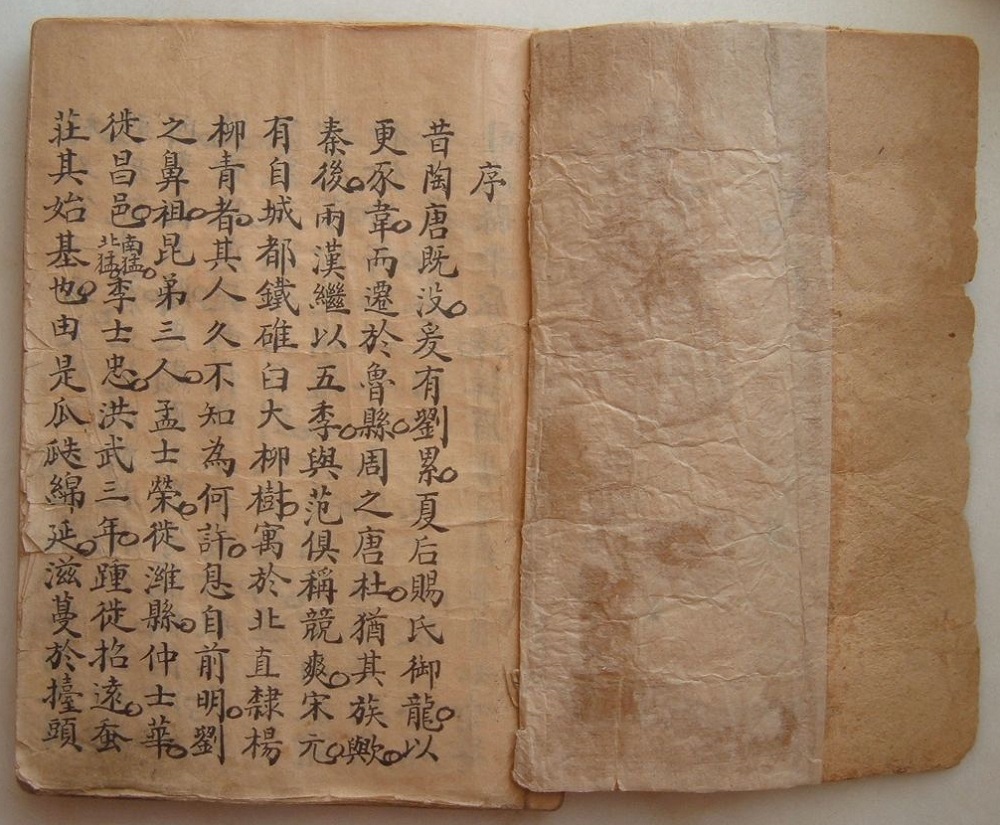 序
昔陶唐既没。爰有劉累。夏后賜氏御龍。以
更豕韋。而遷於魯縣。周之唐杜。猶其族歟。
秦後。兩漢繼以五季。與范俱稱競爽。宋元。
有自城都鐵碓臼大柳樹。寓於北直隸楊
柳青者。其人久不知為何許。息自前明。劉
之鼻祖。昆弟三人。孟士榮。徙濰縣。仲士華。
徙昌邑。南猛。北猛。季士忠。洪武三年。踵徙招遠。蚕
莊其始基也。由是瓜瓞綿延。滋蔓於擡頭